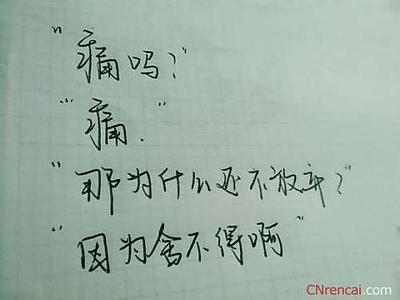 “痛吗？”
“痛．”
“那为什么还不放弃？”
“因为舍不得啊”
CNrencai.com